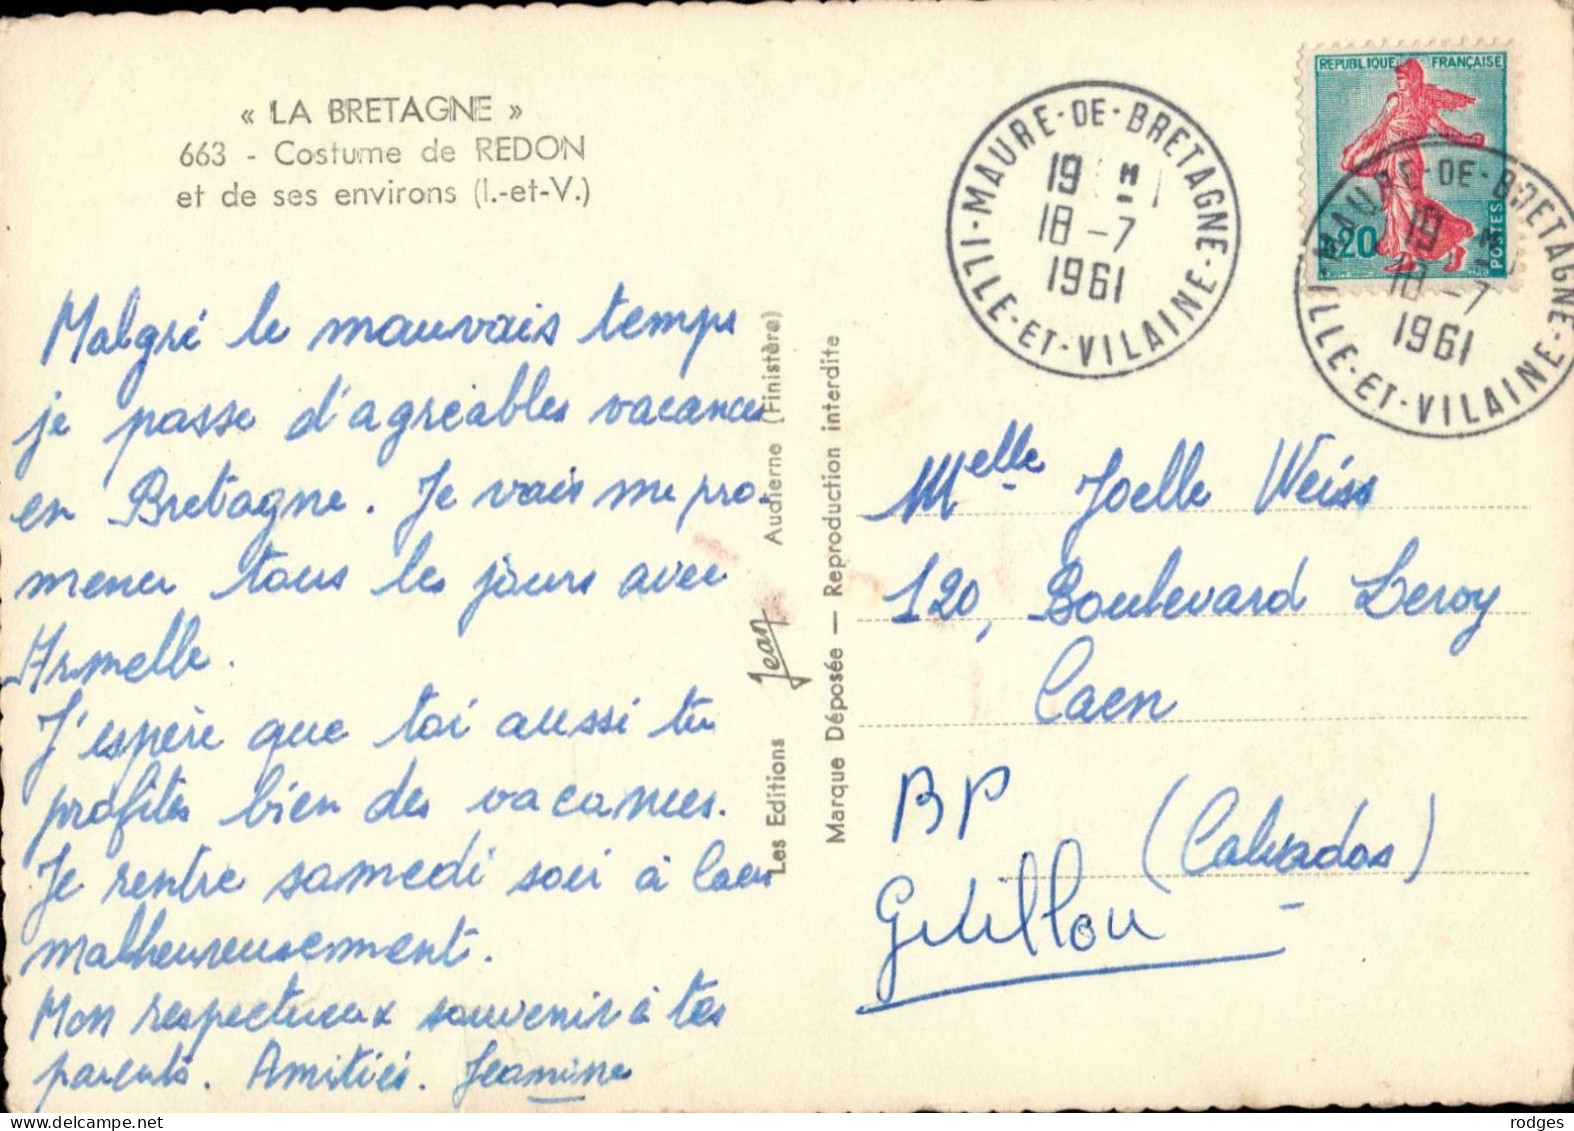 « LA BRETAGNE »
663 - Costume de REDON
et de ses environs (I.-et-V.)
Malgré le mauvais temps
je passe d'agréables vacances
en Bretagne. Je vais me pro-
mener tous les jours avec
Armelle.
J'espère que toi aussi tu
profites bien des vacances.
Je rentre samedi soir à Caen
malheureusement.
Mon respectueux souvenir à tes
parents. Amitiés. Jeannine
Les Editions Jean Audierne (Finistère)
Marque Déposée — Reproduction interdite
MAURE-DE-BRETAGNE
19 H
18-7
1961
ILLE-ET-VILAINE
REPUBLIQUE FRANÇAISE
0,20
POSTES
MAURE-DE-BRETAGNE
19 H
18-7
1961
ILLE-ET-VILAINE
Melle Joelle Weiss
120, Boulevard Leroy
Caen
BP
(Calvados)
Guillou
rodges